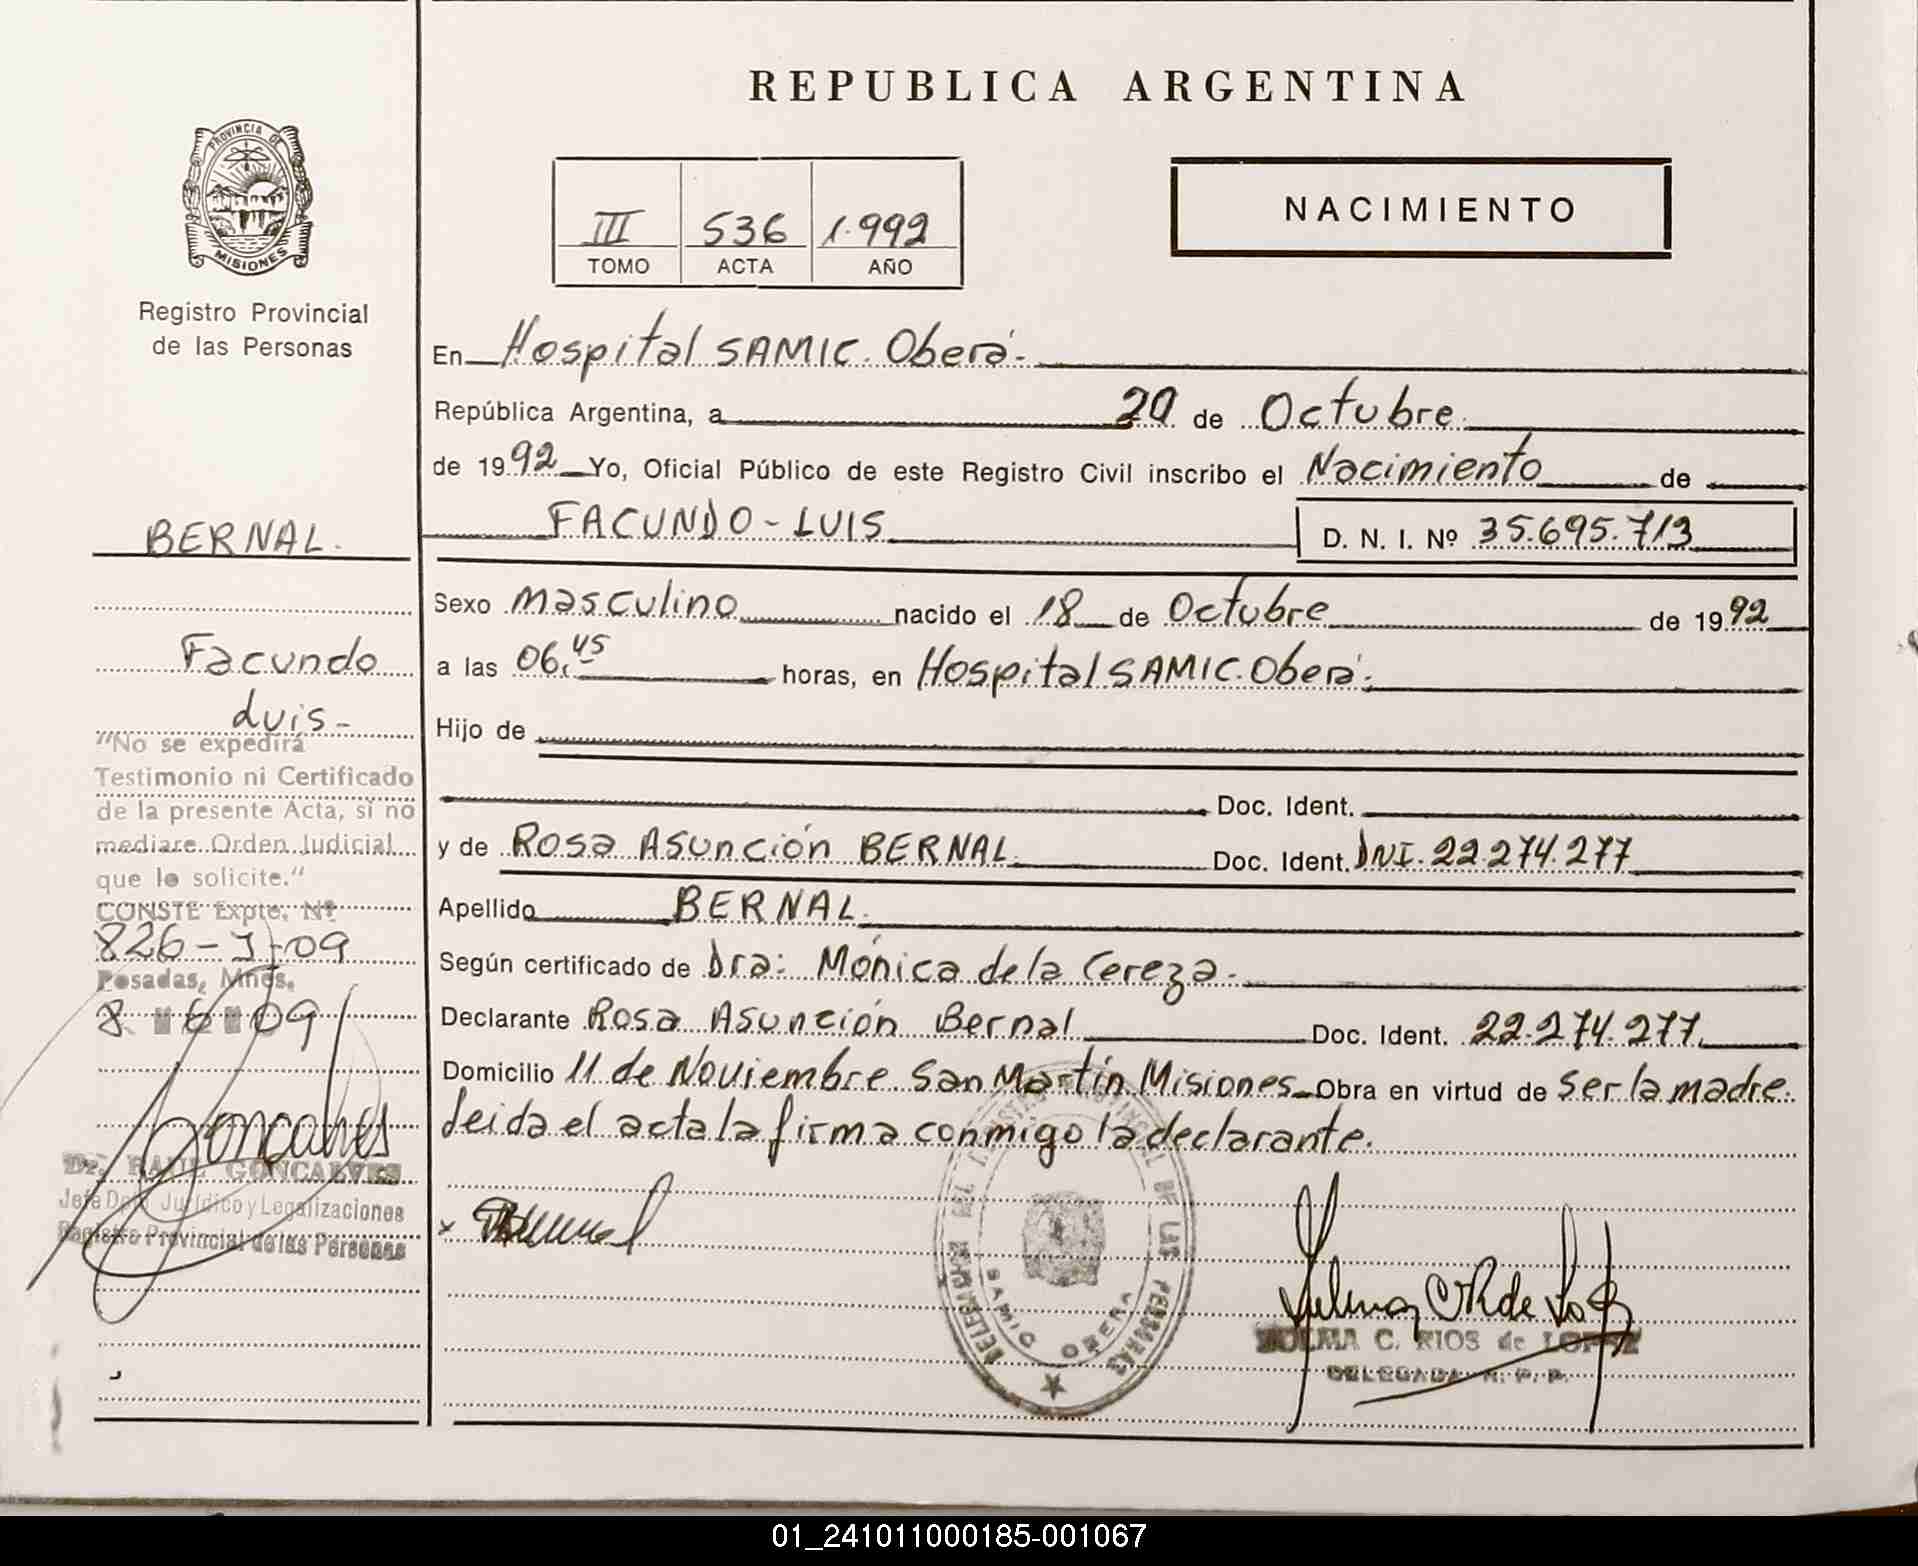 REPUBLICA ARGENTINA
PROVINCIA DE
MISIONES
Registro Provincial
de las Personas
III 536 1.992
TOMO ACTA AÑO
NACIMIENTO
En Hospital SAMIC. Oberá.
República Argentina, a 20 de Octubre.
de 1992 Yo, Oficial Público de este Registro Civil inscribo el Nacimiento de
FACUNDO - LUIS D. N. I. Nº 35.695.713
Sexo Masculino nacido el 18 de Octubre de 1992
a las 06.45 horas, en Hospital SAMIC. Oberá.
Hijo de
Doc. Ident.
y de Rosa Asunción BERNAL. Doc. Ident. DNI. 22.274.277
Apellido BERNAL.
Según certificado de Dra: Mónica de la Cereza.
Declarante Rosa Asunción Bernal Doc. Ident. 22.274.277.
Domicilio 11 de Noviembre San Martín Misiones Obra en virtud de ser la madre.
Leida el acta la firma conmigo la declarante.
BERNAL.
Facundo
Luis -
"No se expedirá
Testimonio ni Certificado
de la presente Acta, si no
mediare Orden Judicial
que lo solicite."
CONSTE Expte. Nº
826-J-09
Posadas, Mnes.
8 6 09
Goncalves
Dr. RAUL GONCALVES
Jefe Dpto Jurídico y Legalizaciones
Registro Provincial de las Personas
x
DELEGACION DEL REGISTRO PROVINCIAL DE LAS PERSONAS
SAMIC OBERA
ZULMA C. RIOS de LOPEZ
DELEGADA R. P. P.
01_241011000185-001067